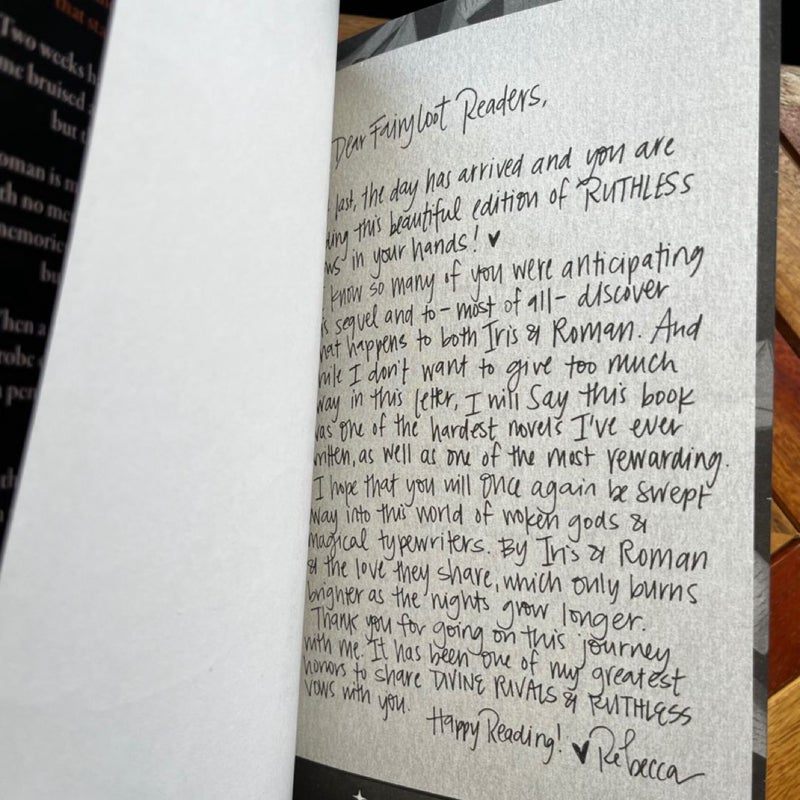 that sta
Two weeks h
me bruised a
but t
oman is n
th no me
memorie
bu
hen a
robe
a per
Dear Fairyloot Readers,
last, the day has arrived and you are
ding this beautiful edition of RUTHLESS
ws in your hands! ♥
know so many of you were anticipating
is sequel and to - most of all - discover
hat happens to both Iris & Roman. And
hile I don't want to give too much
way in this letter, I will say this book
was one of the hardest novels I've ever
written, as well as one of the most rewarding.
I hope that you will once again be swept
away into this world of woken gods &
magical typewriters. By Iris & Roman
& the love they share, which only burns
brighter as the nights grow longer.
Thank you for going on this journey
with me. It has been one of my greatest
honors to share DIVINE RIVALS & RUTHLESS
VOWS with you.
Happy Reading! ♥ Rebecca